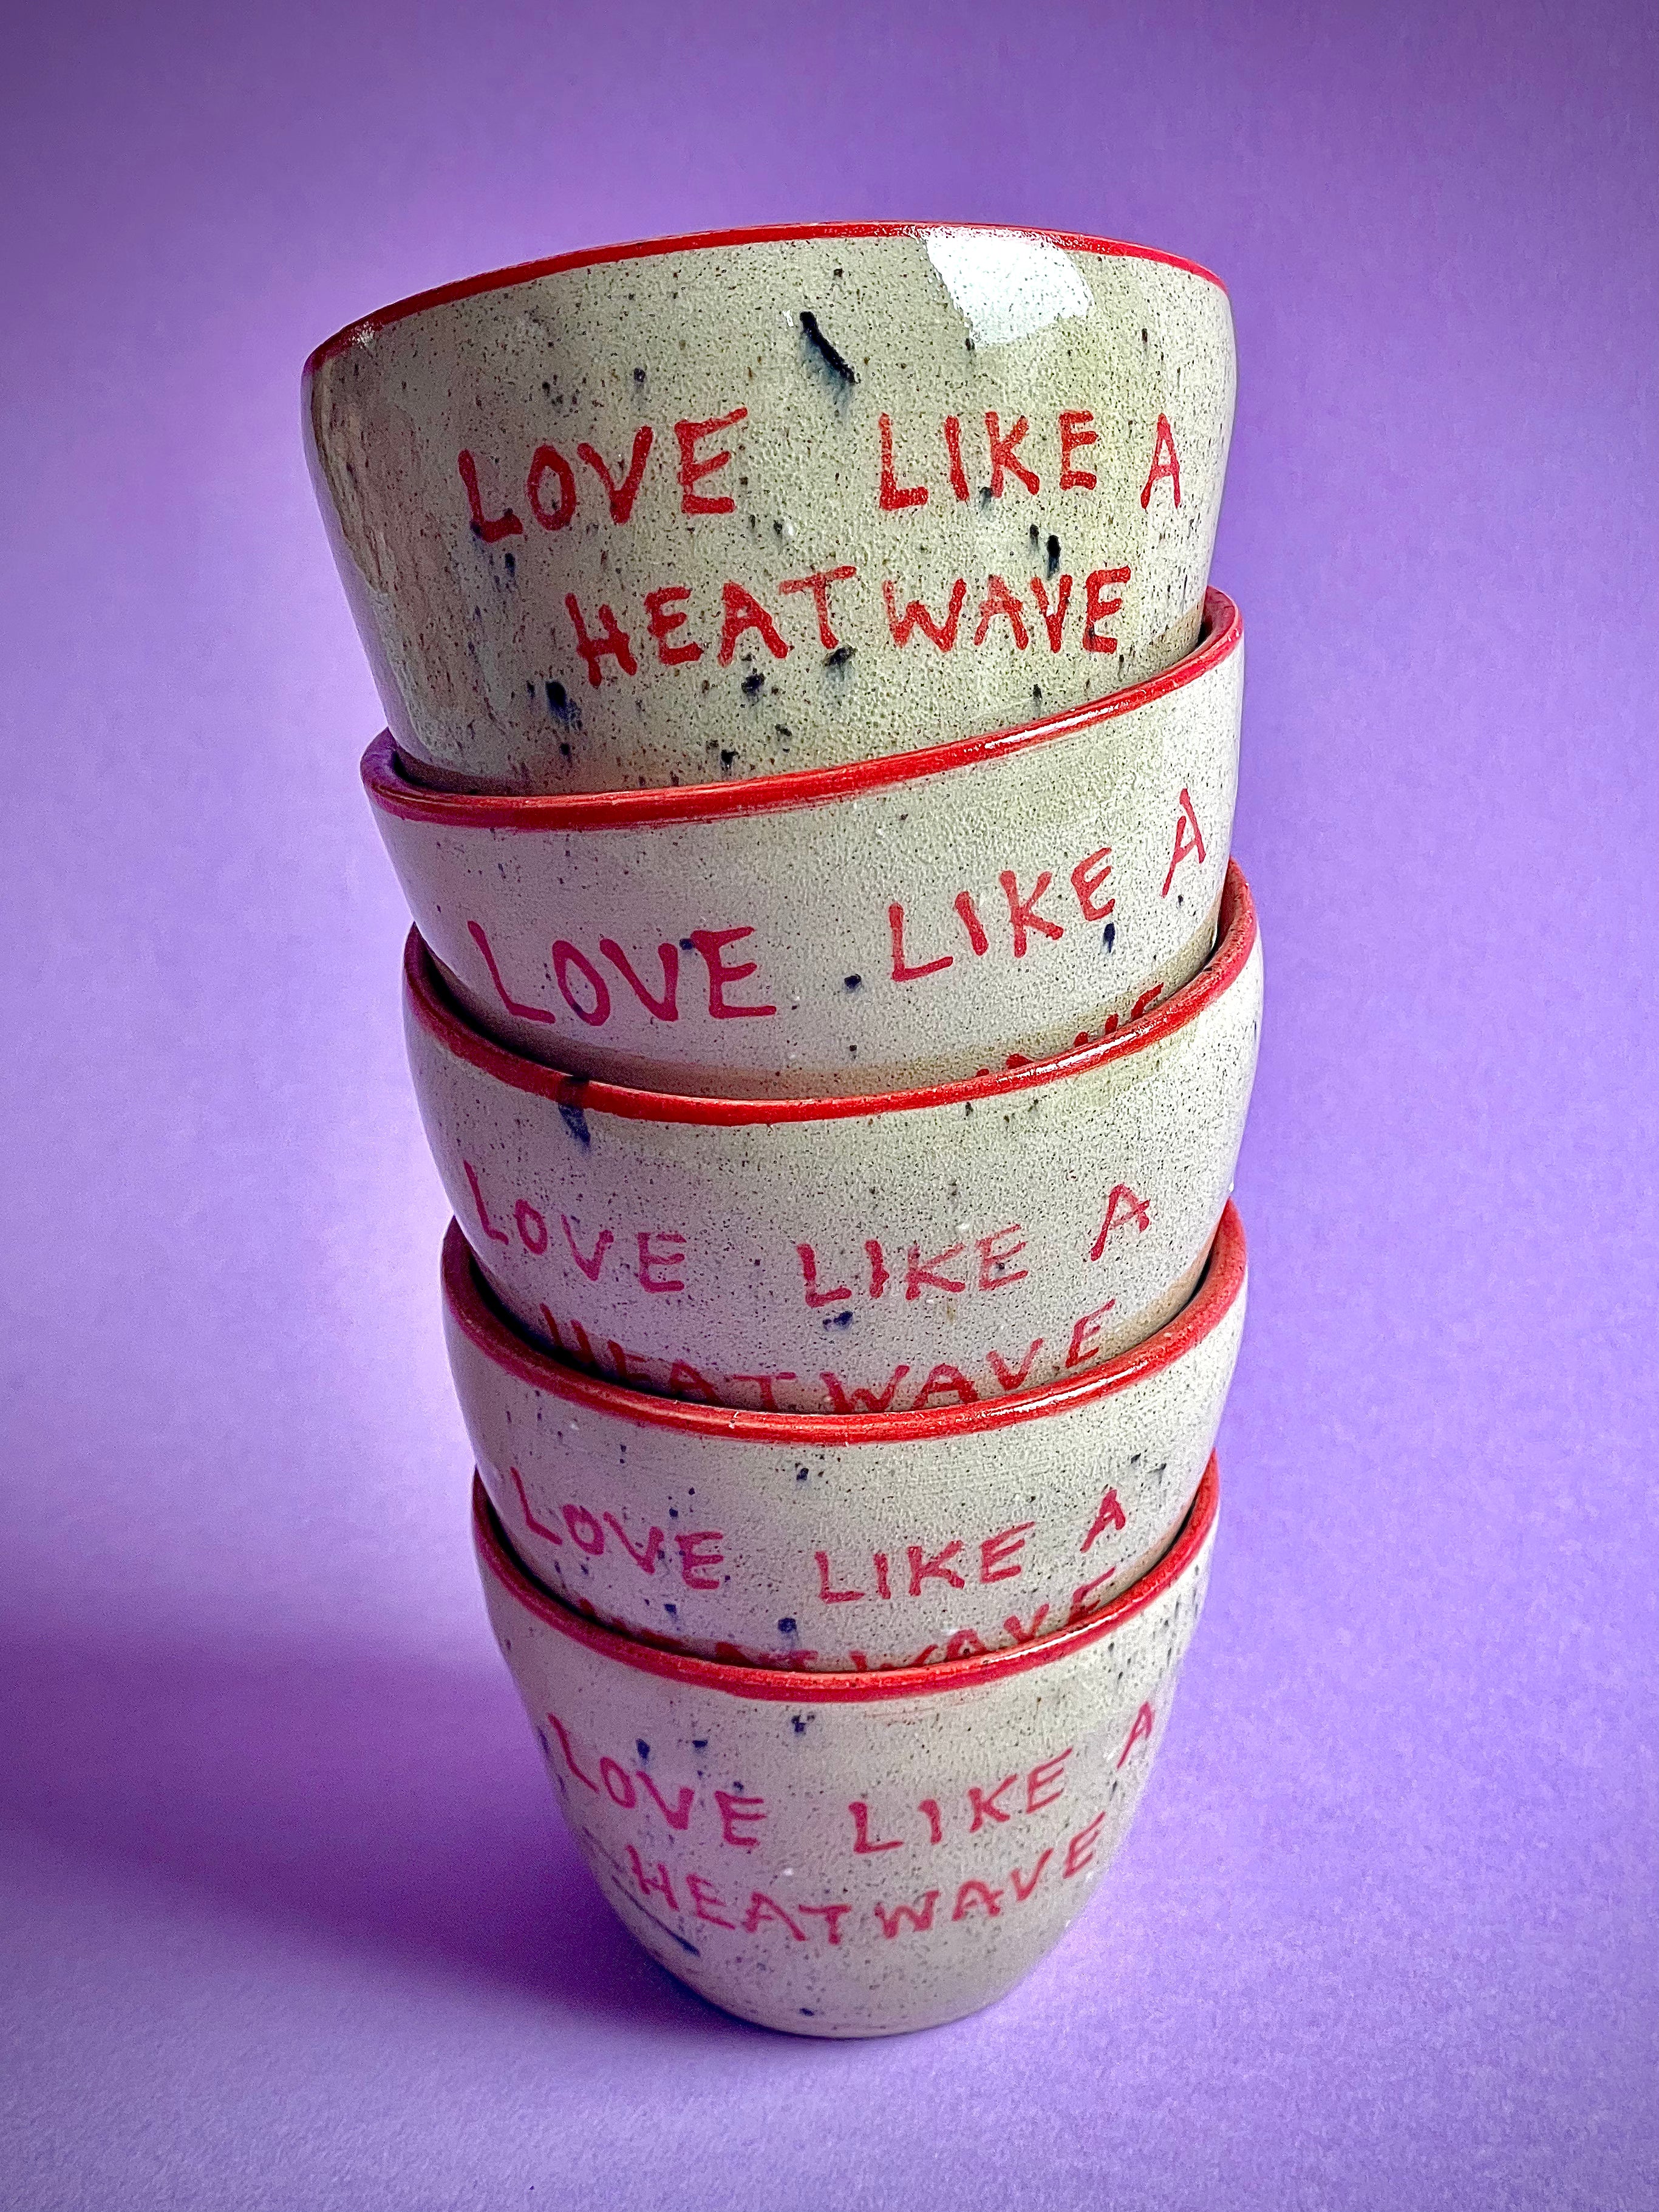 LOVE LIKE A
HEATWAVE
LOVE LIKE A
LOVE LIKE A
HEATWAVE
LOVE LIKE A
LOVE LIKE A
HEATWAVE